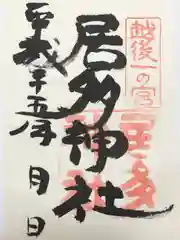 越後一の宮
居多神社
平成二十五年 月 日